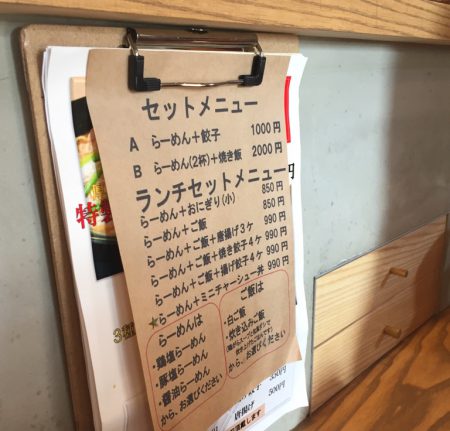 セットメニュー
A らーめん+餃子 1000円
B らーめん(2杯)+焼き飯 2000円
ランチセットメニュー
らーめん+おにぎり(小) 850円
らーめん+ご飯 850円
らーめん+ご飯+唐揚げ3ケ 990円
らーめん+ご飯+焼き餃子4ケ 990円
らーめん+ご飯+揚げ餃子4ケ 990円
★らーめん+ミニチャーシュー丼 990円
らーめんは
・鶏塩らーめん
・豚塩らーめん
・醤油らーめん
から、お選びください
ご飯は
・白ご飯
・炊き込みご飯
から、お選びください
特
円
500円
唐揚げ